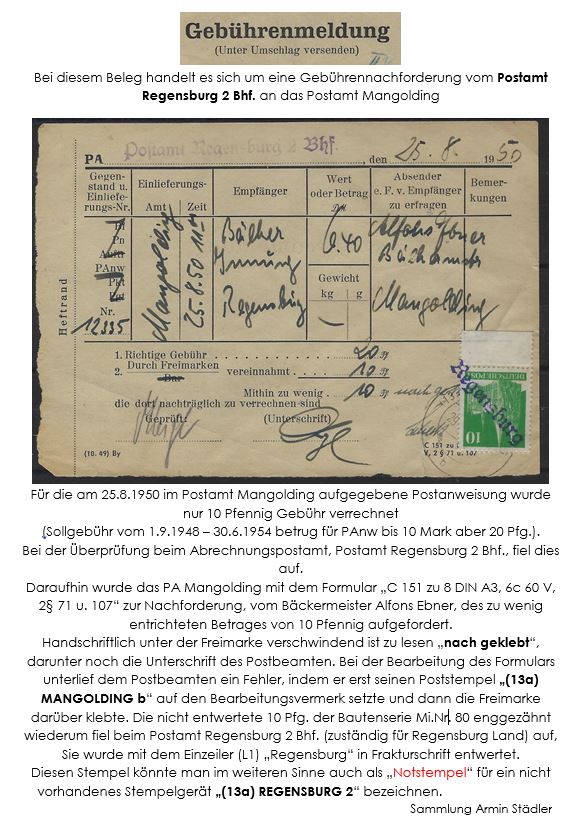 Gebührenmeldung
(Unter Umschlag versenden)
Bei diesem Beleg handelt es sich um eine Gebührennachforderung vom Postamt
Regensburg 2 Bhf. an das Postamt Mangolding
PA Postamt Regensburg 2 Bhf., den 25. 8. 1950
Gegenstand u. Einliefe-rungs-Nr.
Einlieferungs-
Amt Zeit
Empfänger
Wert
oder Betrag
Absender
e. F. v. Empfänger
zu erfragen
Bemer-
kungen
PAnw
Nr.
12335
Mangolding
25.8.50
Innung
Regensburg
6.40
Gewicht
kg g
Alfons Ebner
Mangolding
Heftrand
1. Richtige Gebühr 20 Pf
2. Durch Freimarken vereinnahmt 10 Pf
Bar
Mithin zu wenig 10 Pf
die dort nachträglich zu verrechnen sind
Geprüft: (Unterschrift)
(10. 49) By
C 151 zu
V, 2 § 71 u. 107
DEUTSCHE POST
10
Regensburg
Für die am 25.8.1950 im Postamt Mangolding aufgegebene Postanweisung wurde
nur 10 Pfennig Gebühr verrechnet
(Sollgebühr vom 1.9.1948 – 30.6.1954 betrug für PAnw bis 10 Mark aber 20 Pfg.).
Bei der Überprüfung beim Abrechnungspostamt, Postamt Regensburg 2 Bhf., fiel dies
auf.
Daraufhin wurde das PA Mangolding mit dem Formular „C 151 zu 8 DIN A3, 6c 60 V,
2§ 71 u. 107“ zur Nachforderung, vom Bäckermeister Alfons Ebner, des zu wenig
entrichteten Betrages von 10 Pfennig aufgefordert.
Handschriftlich unter der Freimarke verschwindend ist zu lesen „nach geklebt“,
darunter noch die Unterschrift des Postbeamten. Bei der Bearbeitung des Formulars
unterlief dem Postbeamten ein Fehler, indem er erst seinen Poststempel „(13a)
MANGOLDING b“ auf den Bearbeitungsvermerk setzte und dann die Freimarke
darüber klebte. Die nicht entwertete 10 Pfg. der Bautenserie Mi.Nr. 80 enggezähnt
wiederum fiel beim Postamt Regensburg 2 Bhf. (zuständig für Regensburg Land) auf,
Sie wurde mit dem Einzeiler (L1) „Regensburg“ in Frakturschrift entwertet.
Diesen Stempel könnte man im weiteren Sinne auch als „Notstempel“ für ein nicht
vorhandenes Stempelgerät „(13a) REGENSBURG 2“ bezeichnen.
Sammlung Armin Städler